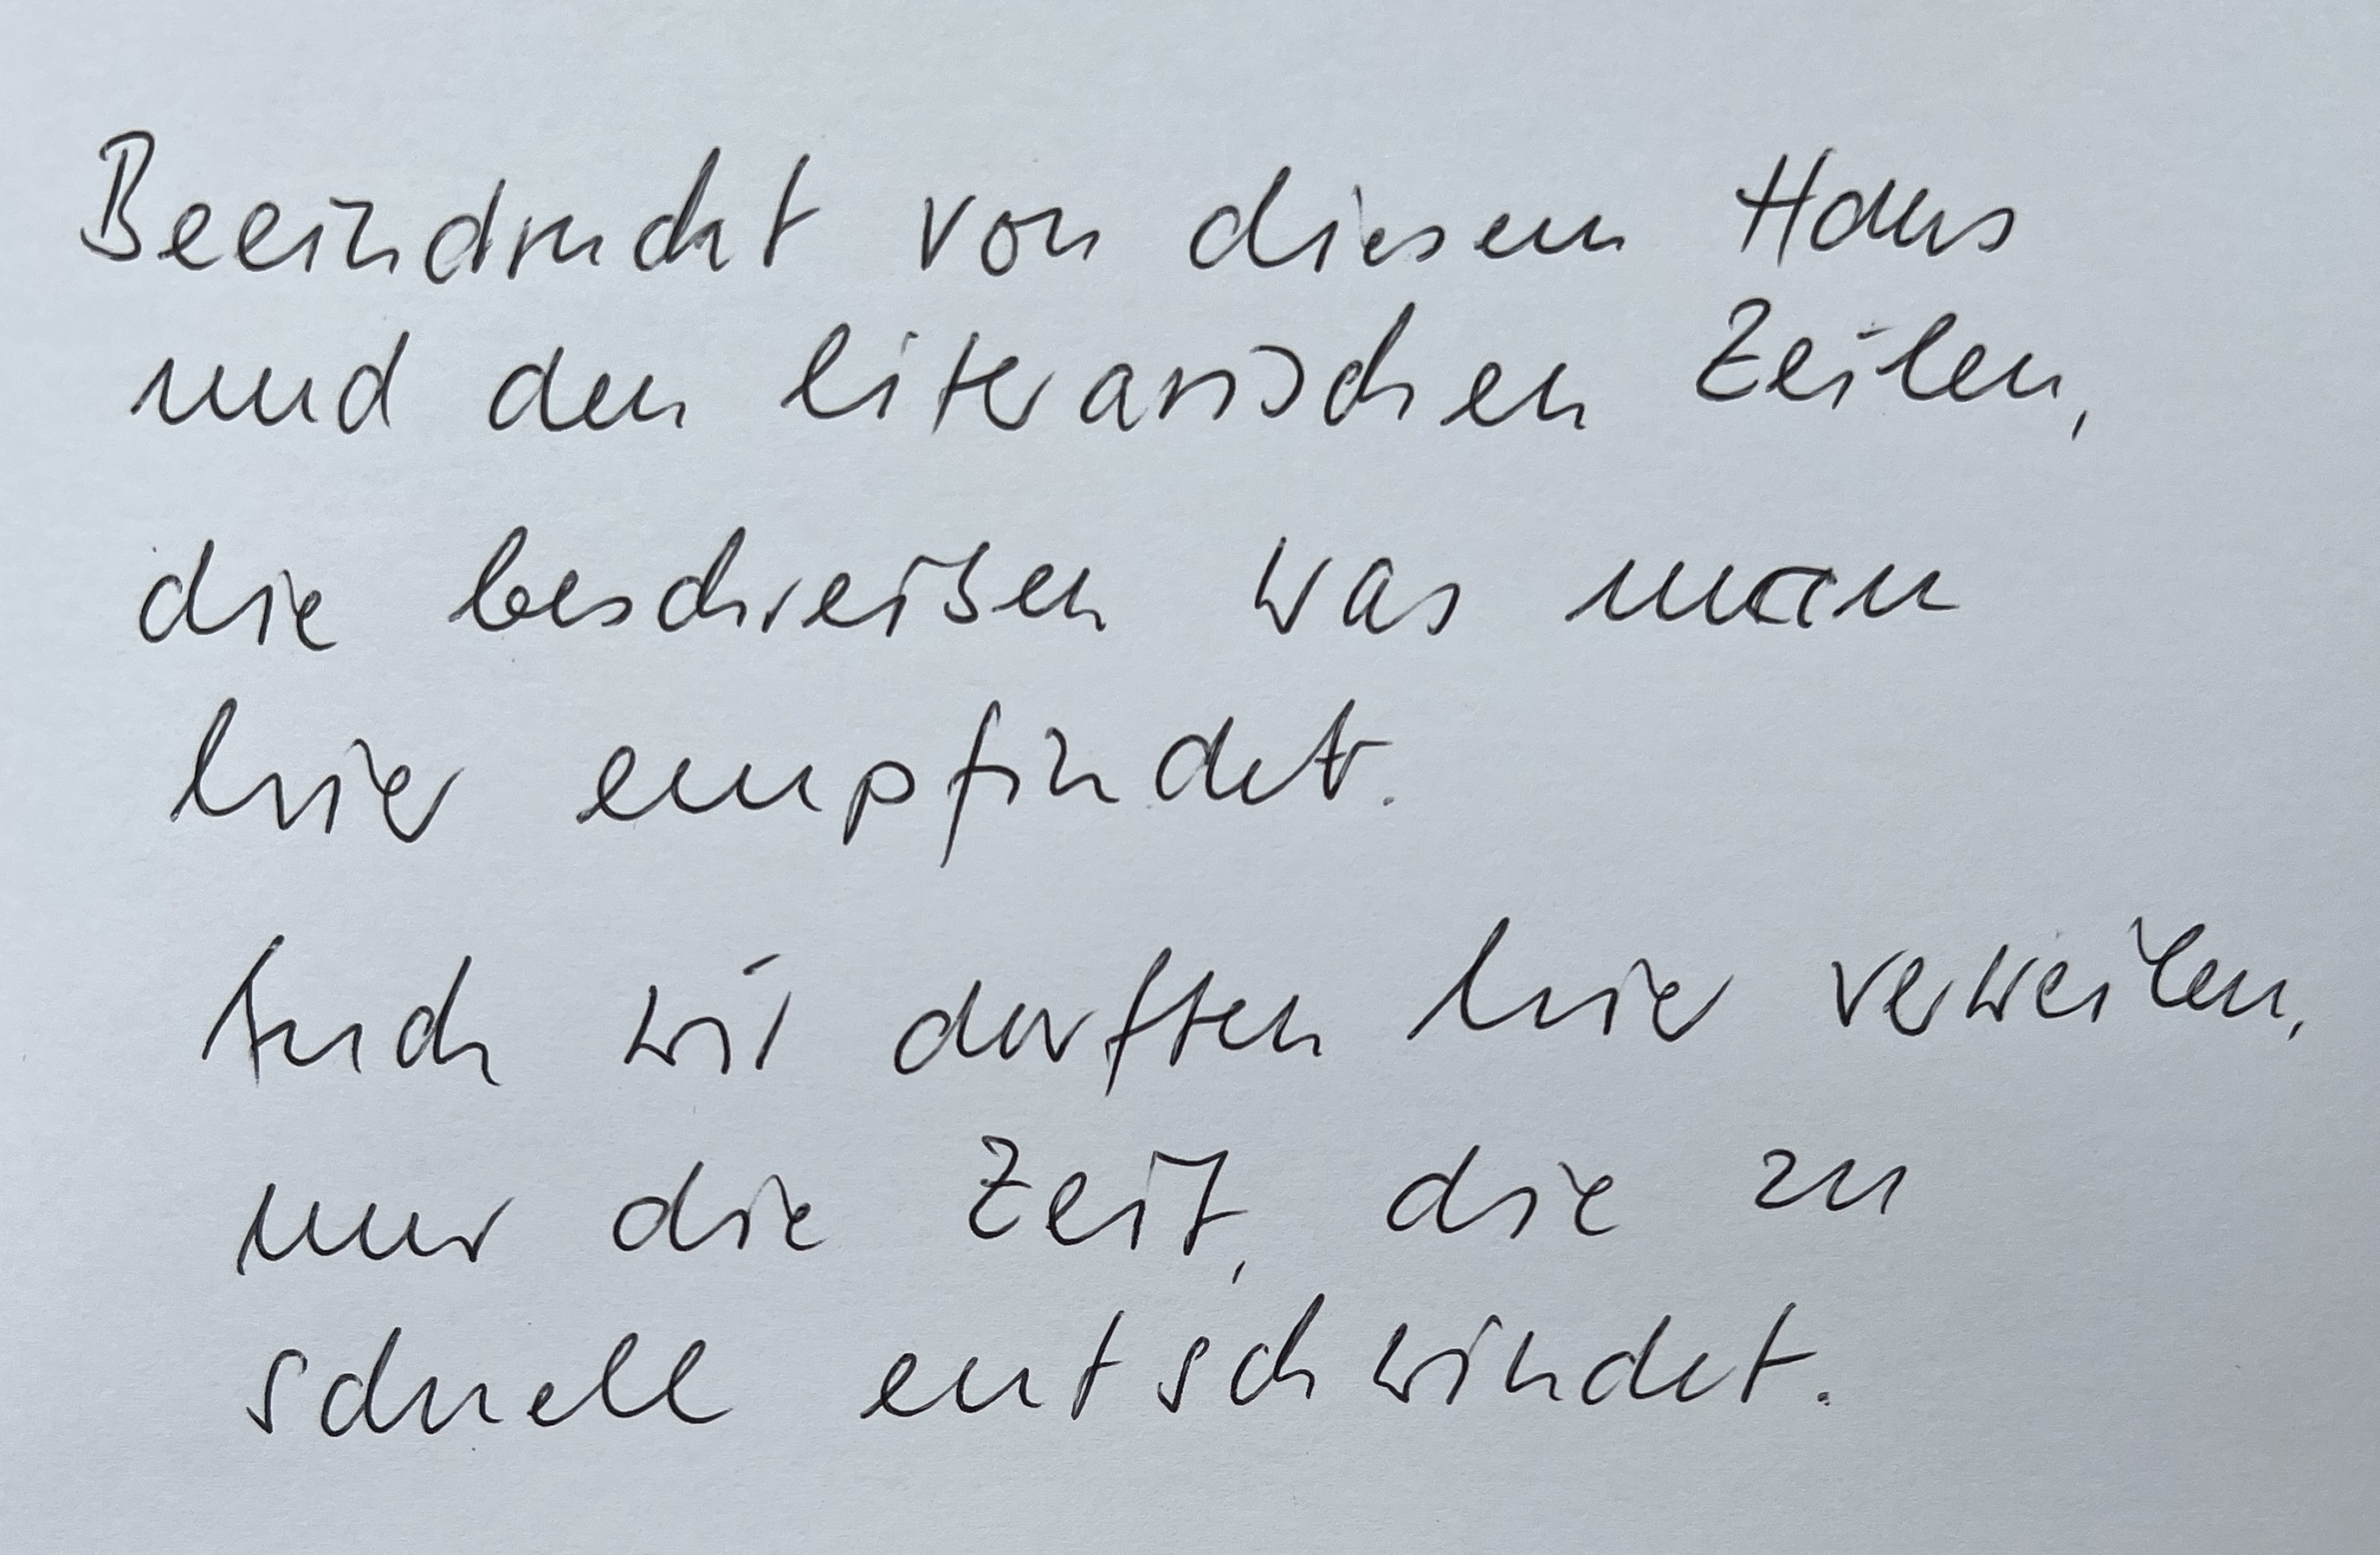 Beeindruckt von diesem Haus
und den literarischen Zeilen,
die beschreiben was man
hier empfindet.
Auch wir durften hier verweilen,
nur die Zeit, die zu
schnell entschwindet.